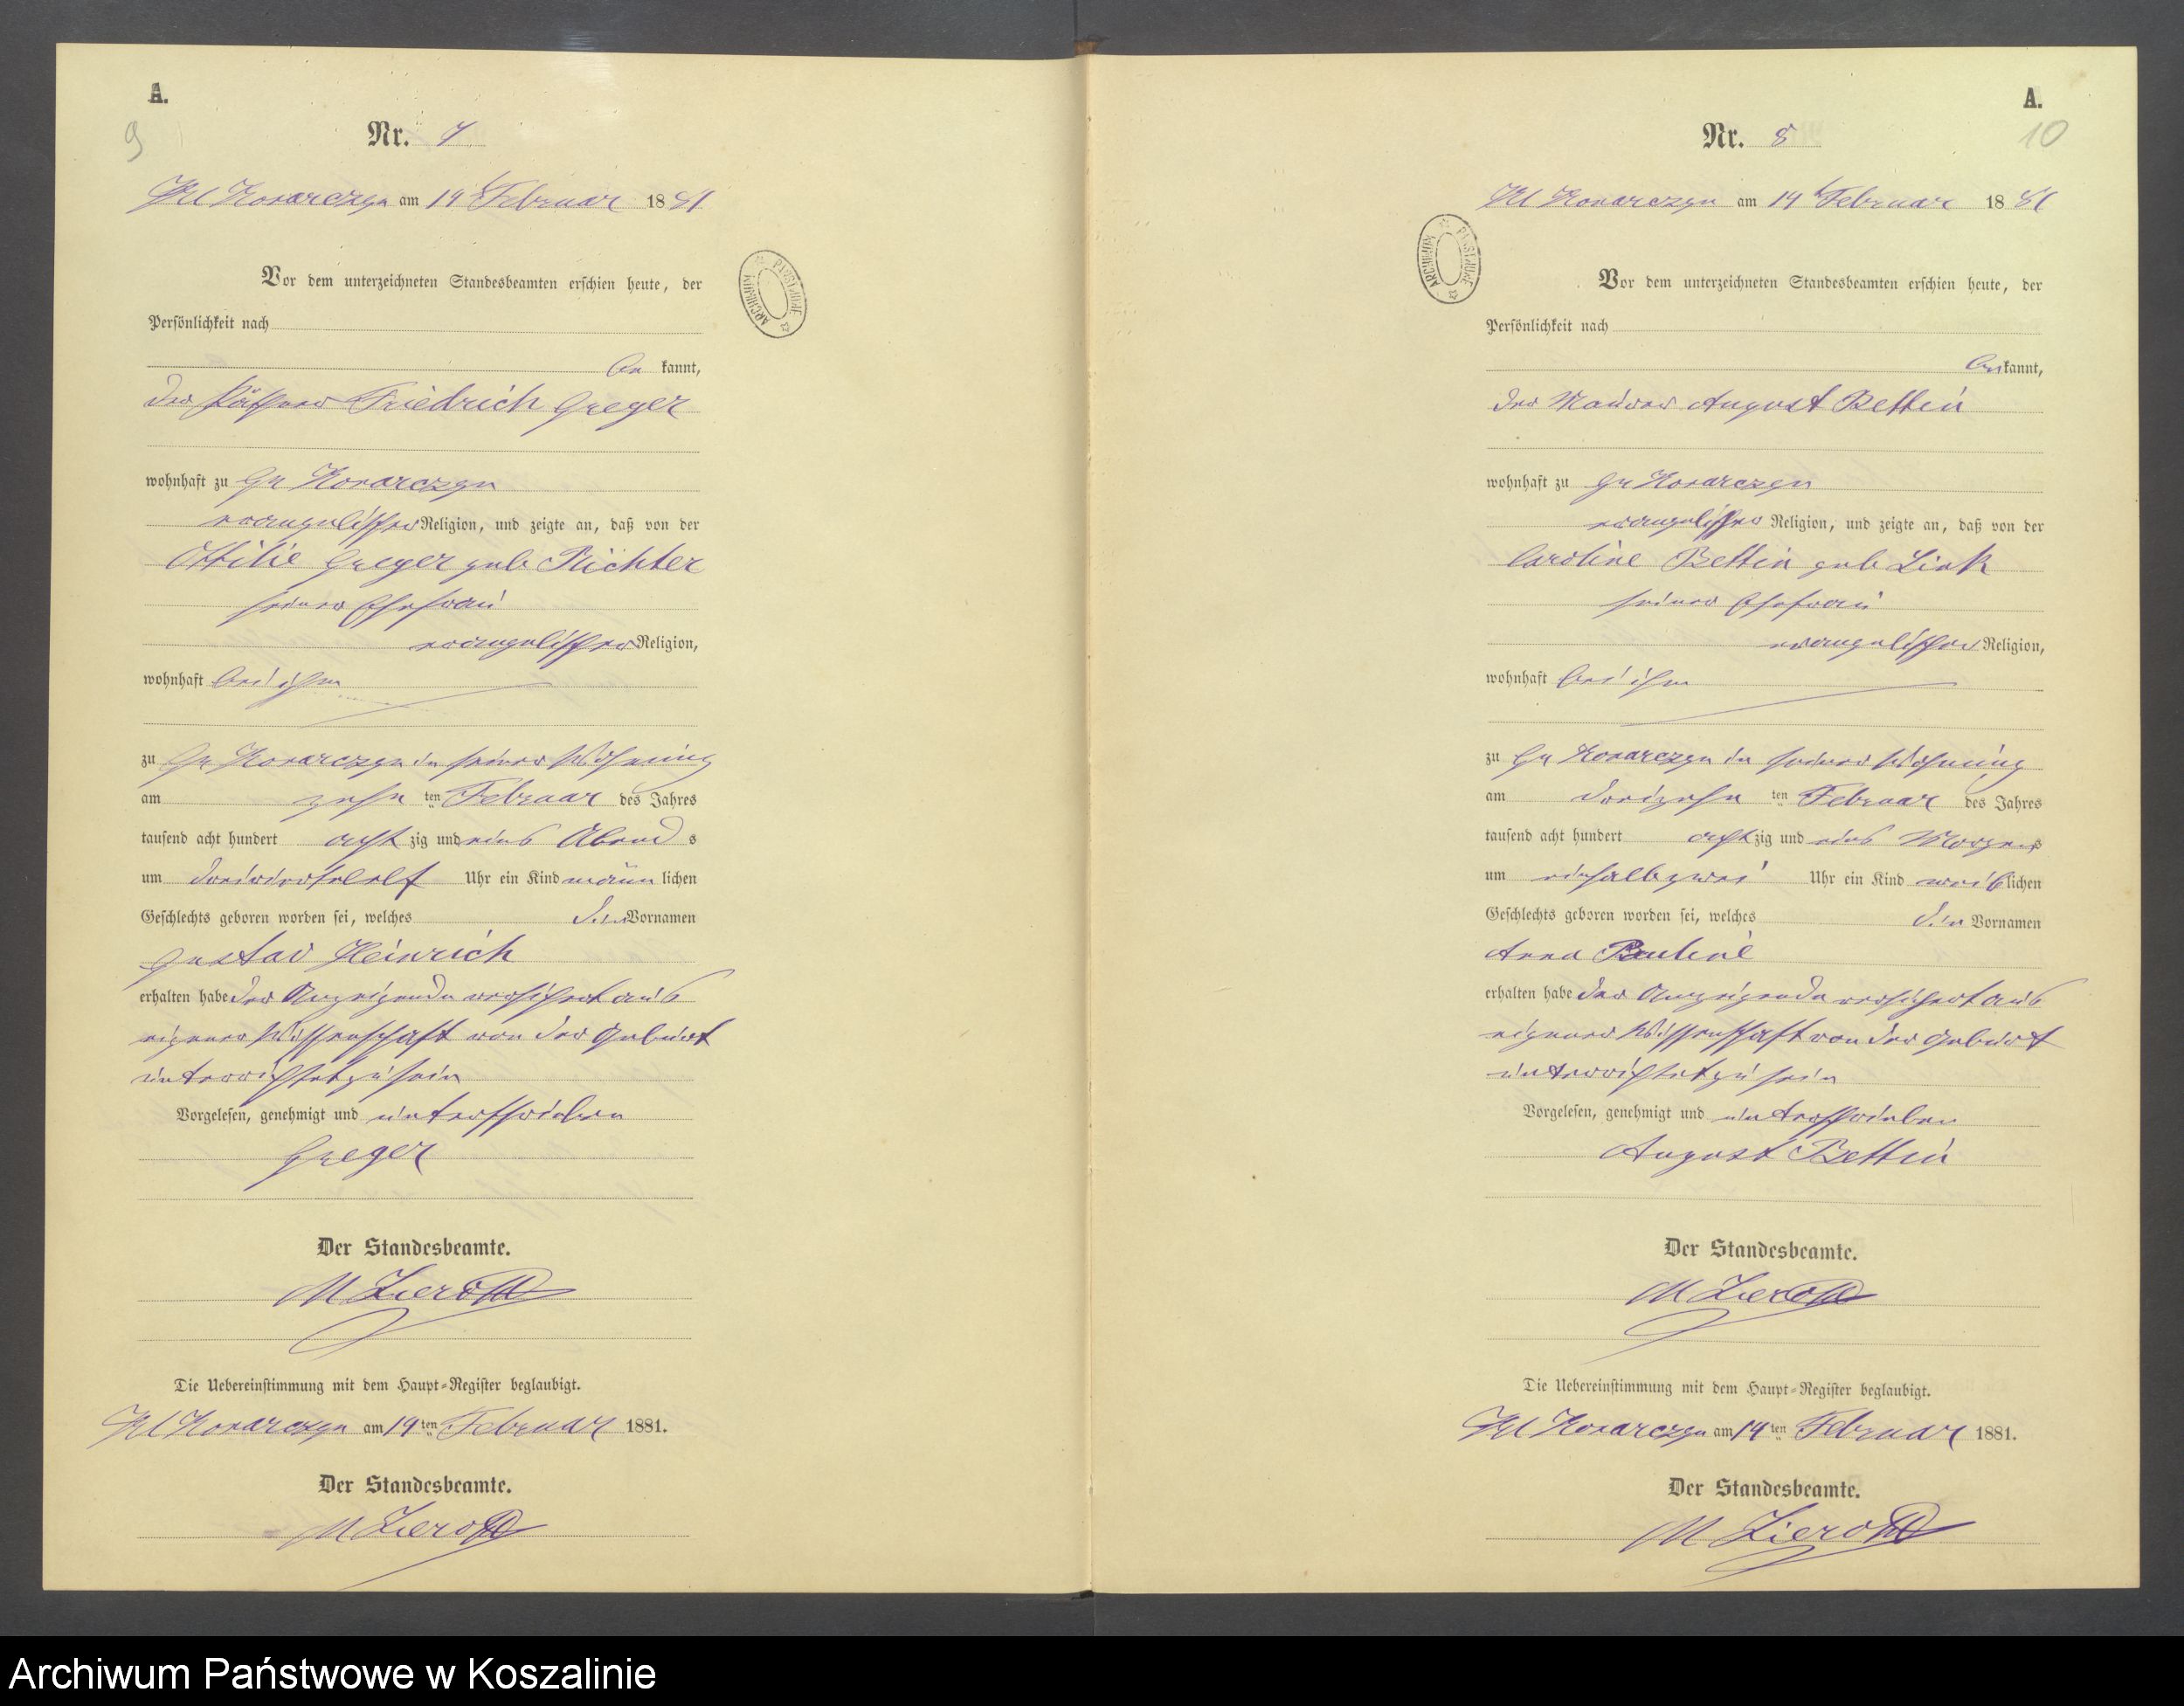 A.
9
Nr. 7
Kl Konarczyn am 14 Februar 1881
Vor dem unterzeichneten Standesbeamten erschien heute, der
Persönlichkeit nach
be kannt,
der Käthner Friedrich Greger
wohnhaft zu Gr Konarczyn
evangelischer Religion, und zeigte an, daß von der
Ottilie Greger geb Richter
seiner Ehefrau
evangelischer Religion,
wohnhaft bei ihm
zu Gr Konarczyn in seiner Wohnung
am zehn ten Februar des Jahres
tausend acht hundert acht zig und eins Abend s
um dreiviertelelf Uhr ein Kind männ lichen
Geschlechts geboren worden sei, welches die Vornamen
Gustav Heinrich
erhalten habe der Anzeigende versichert aus
eigener Wissenschaft von der Geburt
unterrichtet zu sein
Vorgelesen, genehmigt und unterschrieben
Greger
Der Standesbeamte.
M Zieroth
Die Uebereinstimmung mit dem Haupt=Register beglaubigt.
Kl Konarczyn am 14 ten Februar 1881.
Der Standesbeamte.
M Zieroth
A.
10
Nr. 8
Kl Konarczyn am 14 Februar 1881
Vor dem unterzeichneten Standesbeamten erschien heute, der
Persönlichkeit nach
be kannt,
der Maurer August Bettin
wohnhaft zu Gr Konarczyn
evangelischer Religion, und zeigte an, daß von der
Caroline Bettin geb Link
seiner Ehefrau
evangelischer Religion,
wohnhaft bei ihm
zu Gr Konarczyn in seiner Wohnung
am dreizehn ten Februar des Jahres
tausend acht hundert acht zig und eins Morgens
um einhalbzwei Uhr ein Kind weib lichen
Geschlechts geboren worden sei, welches die Vornamen
Anna Pauline
erhalten habe der Anzeigende versichert aus
eigener Wissenschaft von der Geburt
unterrichtet zu sein
Vorgelesen, genehmigt und unterschrieben
August Bettin
Der Standesbeamte.
M Zieroth
Die Uebereinstimmung mit dem Haupt=Register beglaubigt.
Kl Konarczyn am 14 ten Februar 1881.
Der Standesbeamte.
M Zieroth
Archiwum Państwowe w Koszalinie